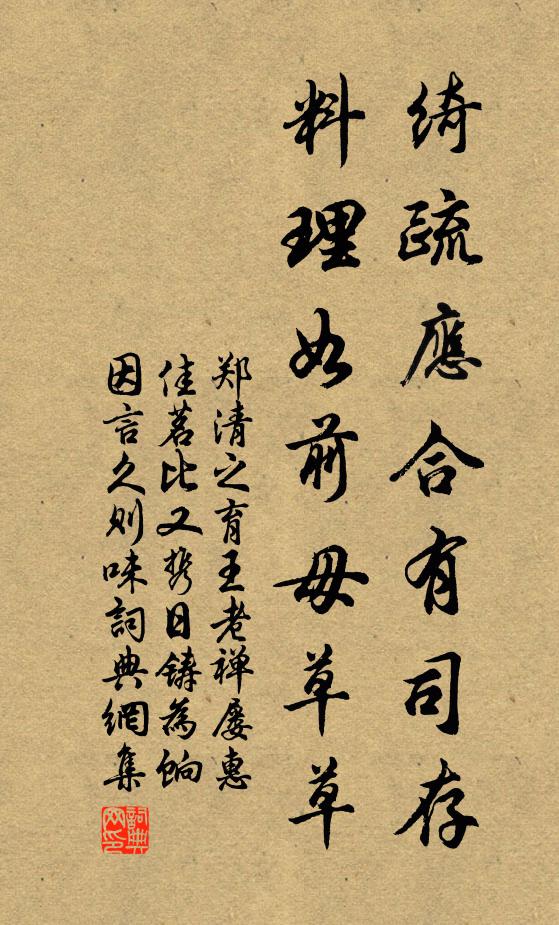 綺疏應合有司存
料理如前毋草草
郑清之育王老禅屡惠
佳茗比又携日鑄為餉
因言久则味詞典網集
詞典网印